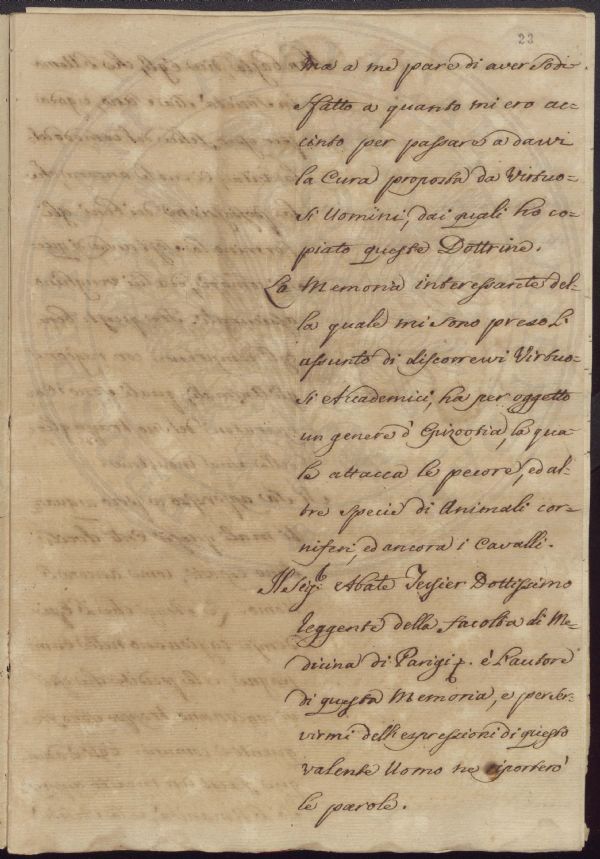 23
ma a me pare di aver Sodi-
sfatto a quanto mi ero ac-
cinto per passare a darvi
la Cura proposta da Virtuo-
si Uomini, dai quali ho co-
piato queste Dottrine.
La Memoria interessante del-
la quale mi sono preso l'
assunto di discorrervi Virtuo-
si Accademici, ha per oggetto
un genere d' Epizootia, la qua-
le attacca le pecore, ed al-
tre specie di Animali cor-
niferi, ed ancora i Cavalli.
Il Sigr. Abate Tessier Dottissimo
leggente della facoltà di Me-
dicina di Parigi è l'autore
di questa Memoria, e per ser-
virmi dell'espressioni di questo
valente Uomo ne riporterò
le parole.